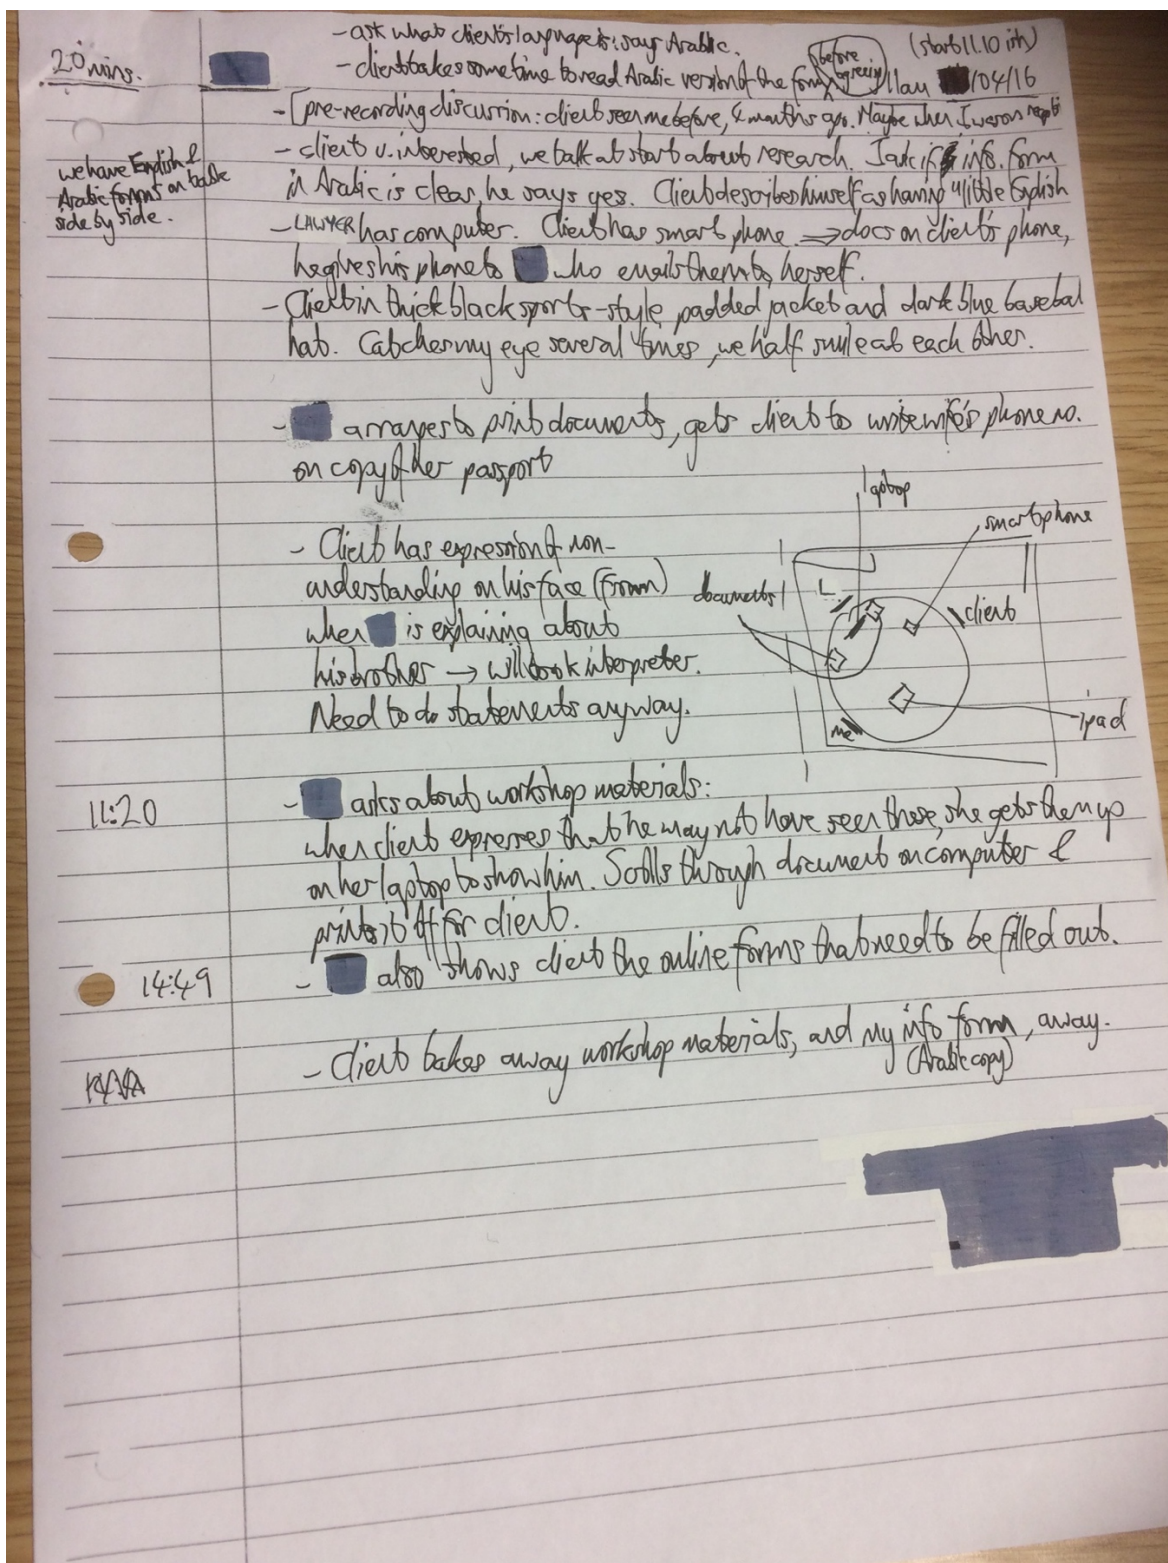 - ask what client's language is: says Arabic.
(start 11.10 ish)
20 mins.
- client takes some time to read Arabic version of the form before agreeing
11am /04/16
- [pre-recording discussion: client seen me before, months ago. Maybe when I was on
- client v. interested, we talk at start about research. I ask if info. form
in Arabic is clear, he says yes. Client describes himself as having "little English
we have English &
Arabic forms on table
side by side.
- LAWYER has computer. Client has smart phone. ⇒ docs on client's phone,
he gives his phone to who emails them to herself.
- Client in thick black sports-style padded jacket and dark blue baseball
hat. Catches my eye several times, we half smile at each other.
- arranges to print documents, gets client to write wife's phone no.
on copy of her passport
- Client has expression of non-
understanding on his face (frown)
when is explaining about
his brother → will book interpreter.
Need to do statements anyway.
laptop
smartphone
documents
L
client
me
ipad
11:20
- asks about workshop materials:
when client expresses that he may not have seen these, she gets them up
on her laptop to show him. Scrolls through document on computer &
prints it off for client.
14:49
- also shows client the online forms that need to be filled out.
- Client takes away workshop materials, and my info form, away.
(Arabic copy)